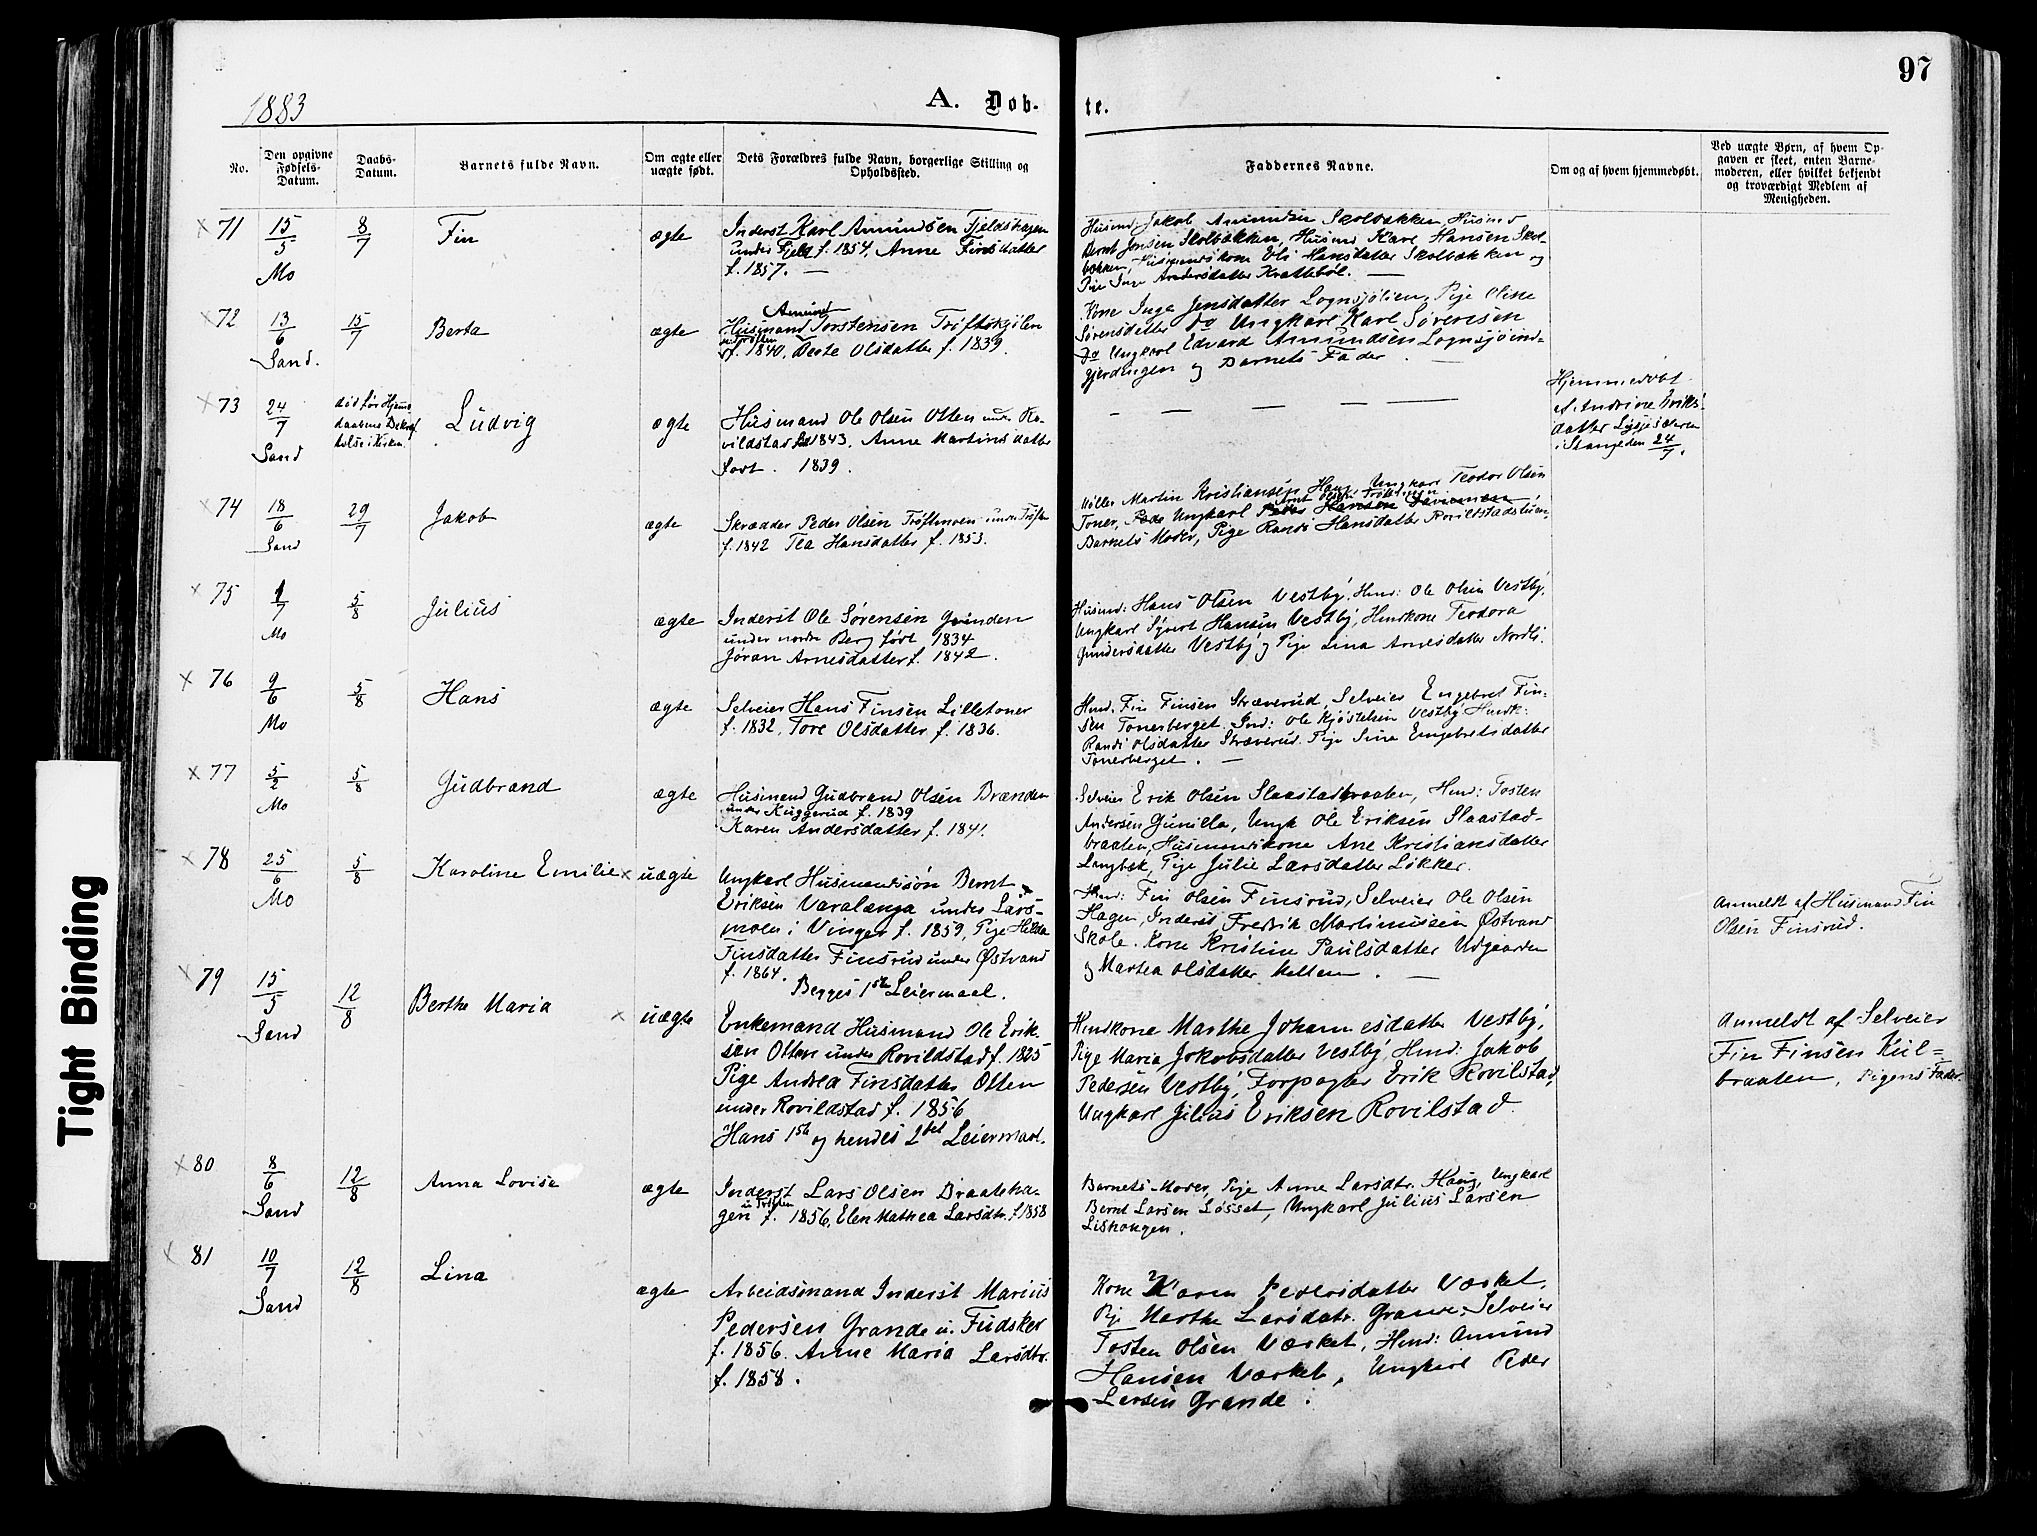 97
1883
A. Døb-
te.
No.
Den opgivne Fødsels-Datum.
Daabs-Datum.
Barnets fulde Navn.
Om ægte eller uægte født.
Dets Forældres fulde Navn, borgerlige Stilling og Opholdssted.
Faddernes Navne.
Om og af hvem hjemmedøbt.
Ved uægte Børn, af hvem Op-
gaven er skeet, enten Barne-
moderen, eller hvilket bekjendt
og troværdigt Medlem af
Menigheden.
71
15/5 Mo
8/7
Fin
ægte
Inderst Karl Amundsen Fjeldshagen
under Fjeld f. 1854, Anne Finsdatter
f. 1857. —
Husmd. Jakob Amundsen Skolbækken, Husmd
Bernt Jensen Skolbækken, Husmd Karl Hansen Skol-
bækken, Husmandskone Oli Hansdatter Skolbækken og
Pige Inge Andersdatter Krattebøl. —
72
13/6 Sand.
15/7
Berta
ægte
Amund
Husmand Torstensen Trøftskjølen
f. 1840, Berte Olsdatter f. 1839.
Kone Inga Jensdatter Lognsjølien, Pige Oline
Sørensdatter do Ungkarl Karl Sørensen
Do Ungkarl Edvard Amundsen Lognsjøind-
gjerdingen og Barnets Fader. —
73
24/7 Sand
død før Hjem-
daabens Bekræf-
telse i Kirken.
Ludvig
ægte
Husmand Ole Olsen Otten under Ro-
vildstad f. 1843. Anne Martinsdatter
født. 1839.
— — — — —
Hjemmedøbt
af Andrine Eriks-
datter Lysjesæteren
i Stange den 24/7.
74
18/6 Sand
29/7
Jakob
ægte
Skrædder Peder Olsen Trøftmoen under Trøften
f. 1842 Tea Hansdatter f. 1853.
Møller Martin Kristiansen Haug, Ungkarl Teodor Olsen
Toner, Ungkarl Peder Hansen
Barnets Moder, Pige Randi Hansdatter Rovildstadstuen.
75
1/7 Mo
5/8
Julius
ægte
Inderst Ole Sørensen Grinden
under nordre Berg født 1834
Jøran Arnesdatter f. 1842.
Husmd: Hans Olsen Vestby, Hmd: Ole Olsen Vestby,
Ungkarl Syvert Hansen Vestby, Hmdkone Teodora
Gundersdatter Vestby og Pige Lina Arnesdatter Nordli.
76
9/6 Mo
5/8
Hans
ægte
Selveier Hans Finsen Lilletoner
f. 1832, Tore Olsdatter f. 1836.
Hmd. Fin Finsen Stræverud, Selveier Engebret Fin-
sen Tonerberget. Ind: Ole Kjøstelsen Vestby Hmdk:
Randi Olsdatter Stræverud. Pige Sina Engebretsdatter
Tonerberget. —
77
5/2 Mo
5/8
Gudbrand
ægte
Husmand Gudbrand Olsen Brænden
under Kuggerud f. 1839
Karen Andersdatter f. 1841.
Selveier Erik Olsen Slaastadbraaten, Hmd: Tosten
Andersen Gunilla, Ungk Ole Eriksen Slaastad-
braaten, Husmandskone Ane Kristiansdatter
Langbæk, Pige Julie Larsdatter Løkker.
78
25/6 Mo
5/8
Karoline Emilie
uægte
Ungkarl Husmandssøn Bernt
Eriksen Varalænga under Lars-
moen i Vinger f. 1859, Pige Hilda
Finsdatter Finsrud under Østvand
f. 1864.
Begges 1ste Leiermaal.
Hmd: Fin Olsen Finsrud, Selveier Ole Olsen
Hagen, Inderst Fredrik Martinussen Østvand
Skole. Kone Kristine Paulsdatter Udgaarden
og Martea Olsdatter Mellem. —
Anmeldt af Husmand Fin
Olsen Finsrud.
79
15/5 Sand
12/8
Berthe Maria
uægte
Enkemand Husmand Ole Erik-
sen Otten under Rovildstad f. 1825
Pige Andrea Finsdatter Otten
under Rovildstad f. 1856
Hans 1ste og hendes 2det Leiermaal.
Hmdkone Marthe Johannesdatter Vestby,
Pige Maria Jakobsdatter Vestby, Hmd: Jakob
Pedersen Vestby, Forpagter Erik Rovilstad,
Ungkarl Julius Eriksen Rovilstad.
Anmeldt af Selveier
Fin Finsen Kul-
braaten, Pigens Fader.
80
8/6 Sand
12/8
Anna Lovise
ægte
Inderst Lars Olsen Braateha-
gen f. 1856, Elen Mathea Larsdtr. f. 1858
Barnets Moder, Pige Anne Larsdtr. Haug, Ungkarl
Bernt Larsen Løsset, Ungkarl Julius Larsen
Lishaugen.
81
10/7 Sand
12/8
Lina
ægte
Arbeidsmand Inderst Marius
Pedersen Grande u. Fudsker
f. 1856. Anne Maria Larsdtr.
f. 1858.
Kone Karen Pedersdatter Værket,
Pige Marthe Larsdatr. Grande, Selveier
Tosten Olsen Værket, Hmd: Amund
Hansen Værket, Ungkarl Peder
Larsen Grande.
Tight Binding